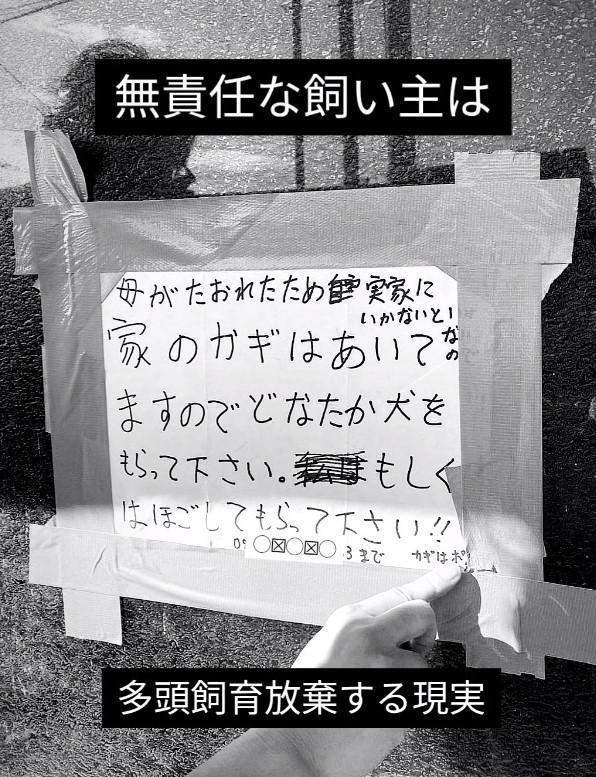 無責任な飼い主は
母がたおれたため実家に
いかないといなの
家のカギはあいて
ますのでどなたか犬を
もらって下さい。もしく
はほごしてもらって下さい!!
09○☒○☒○ 3まで カギはポ
多頭飼育放棄する現実